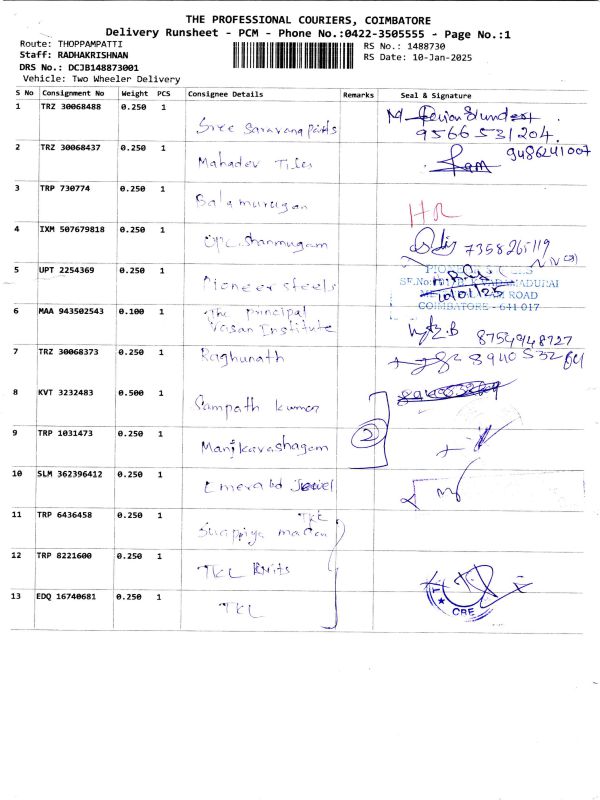 THE PROFESSIONAL COURIERS, COIMBATORE
Delivery Runsheet - PCM - Phone No.:0422-3505555 - Page No.:1
Route: THOPPAMPATTI
RS No.: 1488730
Staff: RADHAKRISHNAN
RS Date: 10-Jan-2025
DRS No.: DCJB148873001
Vehicle: Two Wheeler Delivery
S No Consignment No Weight PCS Consignee Details Remarks Seal & Signature
1 TRZ 30068488 0.250 1 Sree Saravana parts
9566531204
2 TRZ 30068437 0.250 1 Mahadev Tiles 9486241007
3 TRP 730774 0.250 1 Balamurugan HR
4 IXM 507679818 0.250 1 shanmugam 7358265119
5 UPT 2254369 0.250 1 Pioneer steels
10/01/25 ROAD
COIMBATORE - 641 017
6 MAA 943502543 0.100 1 The principal
Vasan Institute 8754948727
7 TRZ 30068373 0.250 1 Raghunath
8 KVT 3232483 0.500 1 Sampath kumar
2
9 TRP 1031473 0.250 1 Manikavashagam
10 SLM 362396412 0.250 1 Emerald Jewel
11 TRP 6436458 0.250 1 TKL
12 TRP 8221600 0.250 1 TKL Knits
13 EDQ 16740681 0.250 1 TKL
CBE